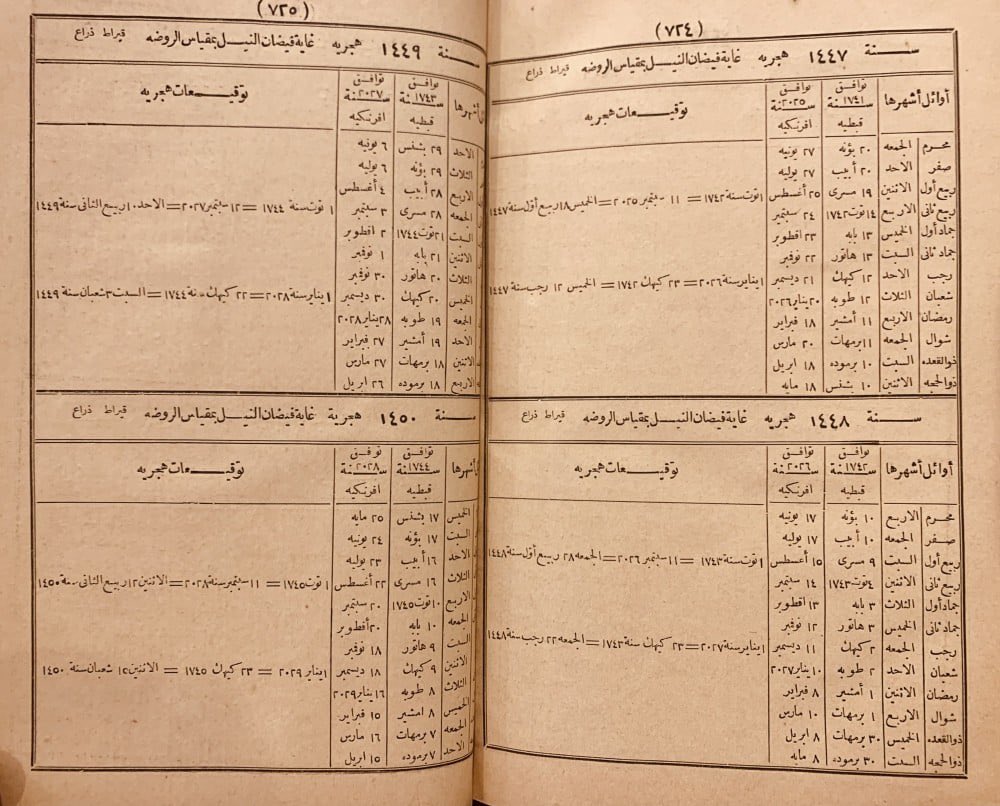 (٧٢٤)
سنة ١٤٤٧ هجريه غاية فيضان النيل بمقياس الروضه قيراط ذراع
أوائل أشهرها توافق سنة ١٧٤١ قبطيه توافق سنة ٢٠٢٥ افرنكيه توقيعات هجريه
محرم الجمعه ٢٠ بؤنه ٢٧ يونيه
صفر الاحد ٢٠ أبيب ٢٧ يوليه
ربيع أول الاثنين ١٩ مسرى ٢٥ أغسطس
ربيع ثانى الاربع ١٤ توت ١٧٤٢ ٢٤ سبتمبر
جماد أول الخميس ١٣ بابه ٢٣ اقطوبر
جماد ثانى السبت ١٣ هاتور ٢٢ نوفمبر
رجب الاحد ١٢ كيهك ٢١ ديسمبر
شعبان الثلاث ١٢ طوبه ٢٠ يناير ٢٠٢٦
رمضان الاربع ١١ أمشير ١٨ فبراير
شوال الجمعه ١١ برمهات ٢٠ مارس
ذوالقعده السبت ١٠ برموده ١٨ ابريل
ذوالحجه الاثنين ١٠ بشنس ١٨ مايه
١ توت سنة ١٧٤٢ = ١١ سبتمبر ٢٠٢٥ = الخميس ١٨ ربيع أول سنة ١٤٤٧
١ يناير سنة ٢٠٢٦ = ٢٣ كيهك ١٧٤٢ = الخميس ١٢ رجب سنة ١٤٤٧
سنة ١٤٤٨ هجريه غاية فيضان النيل بمقياس الروضه قيراط ذراع
أوائل أشهرها توافق سنة ١٧٤٢ قبطيه توافق سنة ٢٠٢٦ افرنكيه توقيعات هجريه
محرم الاربع ١٠ بؤنه ١٧ يونيه
صفر الجمعه ١٠ أبيب ١٧ يوليه
ربيع أول السبت ٩ مسرى ١٥ أغسطس
ربيع ثانى الاثنين ٤ توت ١٧٤٣ ١٤ سبتمبر
جماد أول الثلاث ٣ بابه ١٣ اقطوبر
جماد ثانى الخميس ٣ هاتور ١٢ نوفمبر
رجب الجمعه ٢ كيهك ١١ ديسمبر
شعبان الاحد ٢ طوبه ١٠ يناير ٢٠٢٧
رمضان الاثنين ١ أمشير ٨ فبراير
شوال الاربع ١ برمهات ١٠ مارس
ذوالقعده الخميس ٣٠ برمهات ٨ ابريل
ذوالحجه السبت ٣٠ برموده ٨ مايه
١ توت سنة ١٧٤٣ = ١١ سبتمبر ٢٠٢٦ = الجمعه ٢٨ ربيع أول سنة ١٤٤٨
١ يناير سنة ٢٠٢٧ = ٢٣ كيهك سنة ١٧٤٣ = الجمعه ٢٢ رجب سنة ١٤٤٨
(٧٢٥)
سنة ١٤٤٩ هجريه غاية فيضان النيل بمقياس الروضه قيراط ذراع
أشهرها توافق سنة ١٧٤٣ قبطيه توافق سنة ٢٠٢٧ افرنكيه توقيعات هجريه
الاحد ٢٩ بشنس ٦ يونيه
الثلاث ٢٩ بؤنه ٦ يوليه
الاربع ٢٨ أبيب ٤ أغسطس
الجمعه ٢٨ مسرى ٣ سبتمبر
السبت ٢١ توت ١٧٤٤ ٢ اقطوبر
الاثنين ٢١ بابه ١ نوفمبر
الثلاث ٢٠ هاتور ٣٠ نوفمبر
الخميس ٢٠ كيهك ٣٠ ديسمبر
الجمعه ١٩ طوبه ٢٨ يناير ٢٠٢٨
الاحد ١٩ أمشير ٢٧ فبراير
الاثنين ١٨ برمهات ٢٧ مارس
الاربع ١٨ برموده ٢٦ ابريل
١ توت سنة ١٧٤٤ = ١٢ سبتمبر ٢٠٢٧ = الاحد ١٠ ربيع الثانى سنة ١٤٤٩
١ يناير سنة ٢٠٢٨ = ٢٢ كيهك سنة ١٧٤٤ = السبت ٣ شعبان سنة ١٤٤٩
سنة ١٤٥٠ هجرية غاية فيضان النيل بمقياس الروضه قيراط ذراع
أشهرها توافق سنة ١٧٤٤ قبطيه توافق سنة ٢٠٢٨ افرنكيه توقيعات هجريه
الخميس ١٧ بشنس ٢٥ مايه
السبت ١٧ بؤنه ٢٤ يونيه
الاحد ١٦ أبيب ٢٣ يوليه
الثلاث ١٦ مسرى ٢٢ أغسطس
الاربع ١٠ توت ١٧٤٥ ٢٠ سبتمبر
الجمعه ١٠ بابه ٢٠ أقطوبر
السبت ٩ هاتور ١٨ نوفمبر
الاثنين ٩ كيهك ١٨ ديسمبر
الثلاث ٨ طوبه ١٦ يناير ٢٠٢٩
الخميس ٨ امشير ١٥ فبراير
الجمعه ٧ برمهات ١٦ مارس
الاحد ٧ برموده ١٥ ابريل
١ توت ١٧٤٥ = ١١ سبتمبر سنة ٢٠٢٨ = الاثنين ١٢ ربيع الثانى سنة ١٤٥٠
١ يناير ٢٠٢٩ = ٢٣ كيهك ١٧٤٥ = الاثنين ١٥ شعبان سنة ١٤٥٠